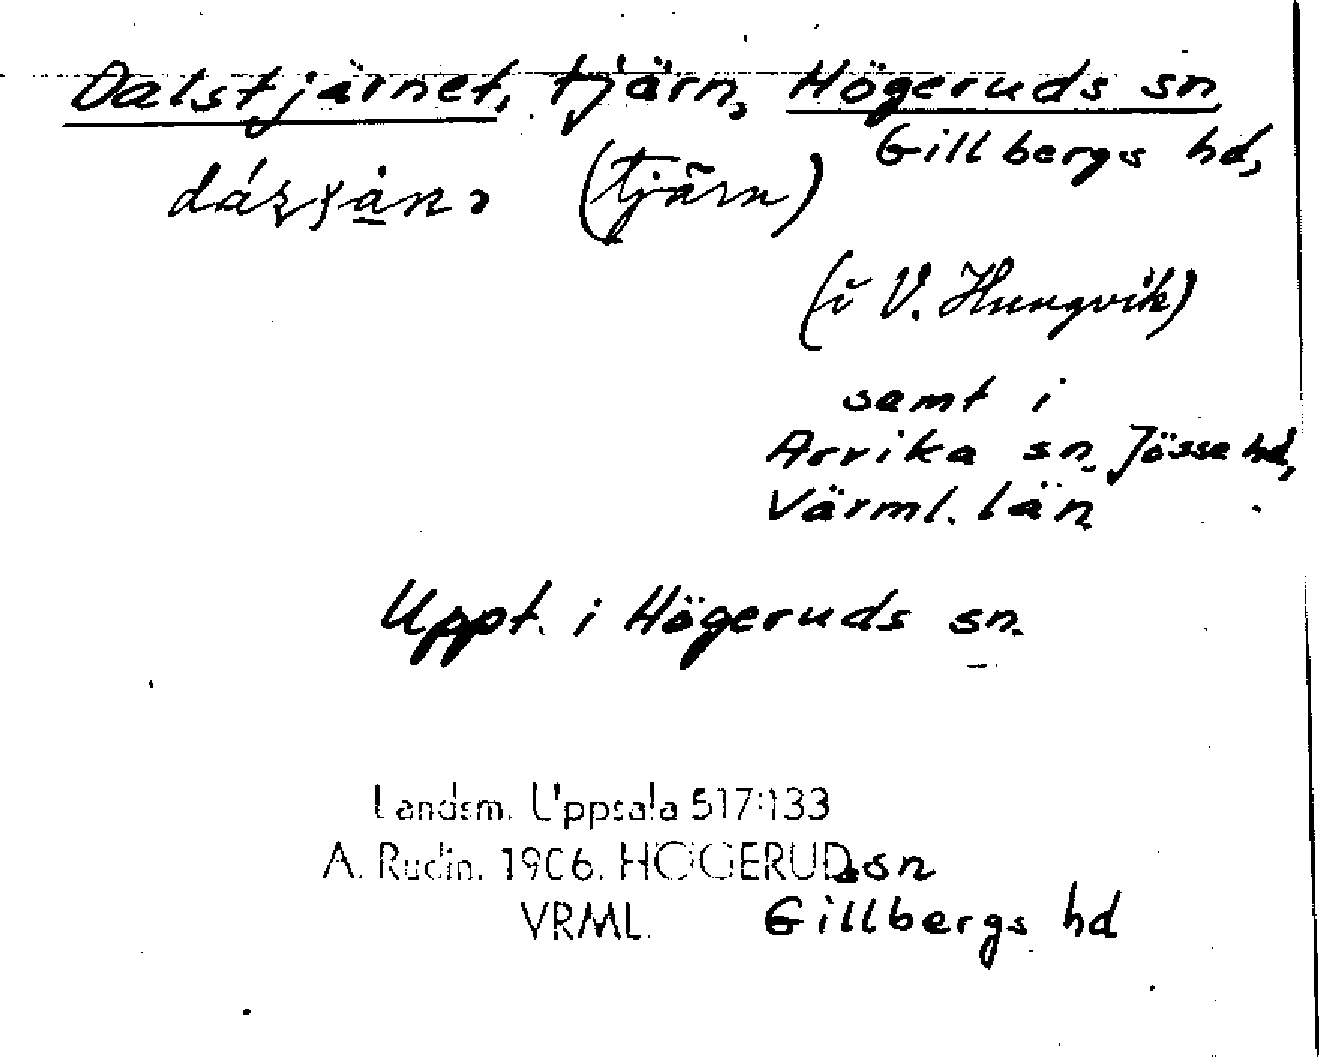 Dalstjärnet, tjärn, Högeruds sn
Gillbergs hd,
(tjärn)
(i V. Hungvik)
samt i
Arvika sn. Jösse hd,
Värml. län
Uppt. i Högeruds sn.
Landsm. Uppsala 517:133
A. Rudin. 1906. HÖGERUDs sn
VRML. Gillbergs hd